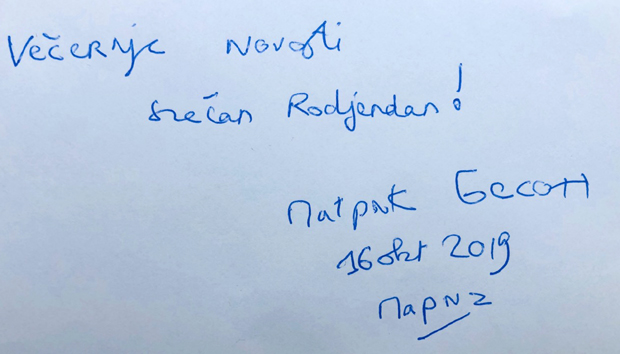 Večernje Novosti
srećan Rodjendan!
Патрик Бесон
16 okt 2019
Париz